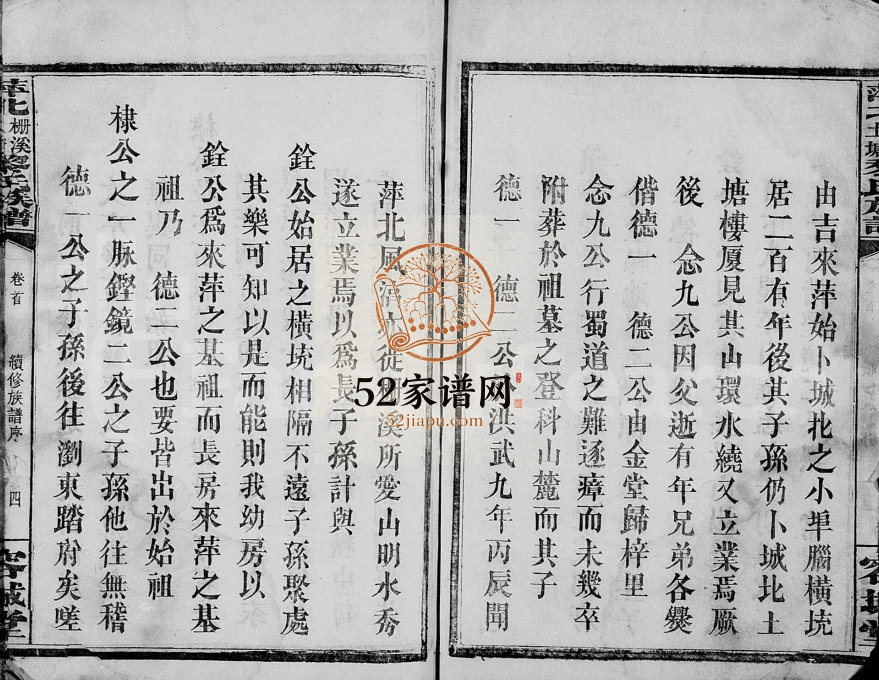 由吉來萍始卜城北之小埠腦橫坈
居二百有年後其子孫仍卜城北土
塘樓厦見其山環水繞又立業焉厥
後　念九公因父逝有年兄弟各爨
偕德一　德二公由金堂歸梓里
念九公行蜀道之難逐瘴而未幾卒
附葬於祖墓之登科山麓而其子
德一　德二公　洪武九年丙辰聞
萍北風清　徙　溪所愛山明水秀
遂立業焉以爲長子孫計與
銓公始居之橫坈相隔不遠子孫聚處
其樂可知以是而能則我幼房以
銓公爲來萍之基祖而長房來萍之基
祖乃　德二公也要皆出於始祖
棣公之一脉鏗鏡二公之子孫他往無稽
德一公之子孫後往瀏東踏府矣嗟
萍北栅溪黎氏族譜
卷首
續修族譜序
四
52家谱网
52jiapu.com